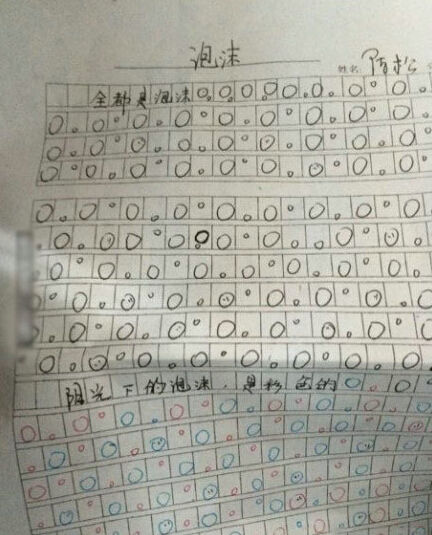 泡沫
姓名:
全都是泡沫
阳光下的泡沫,是彩色的